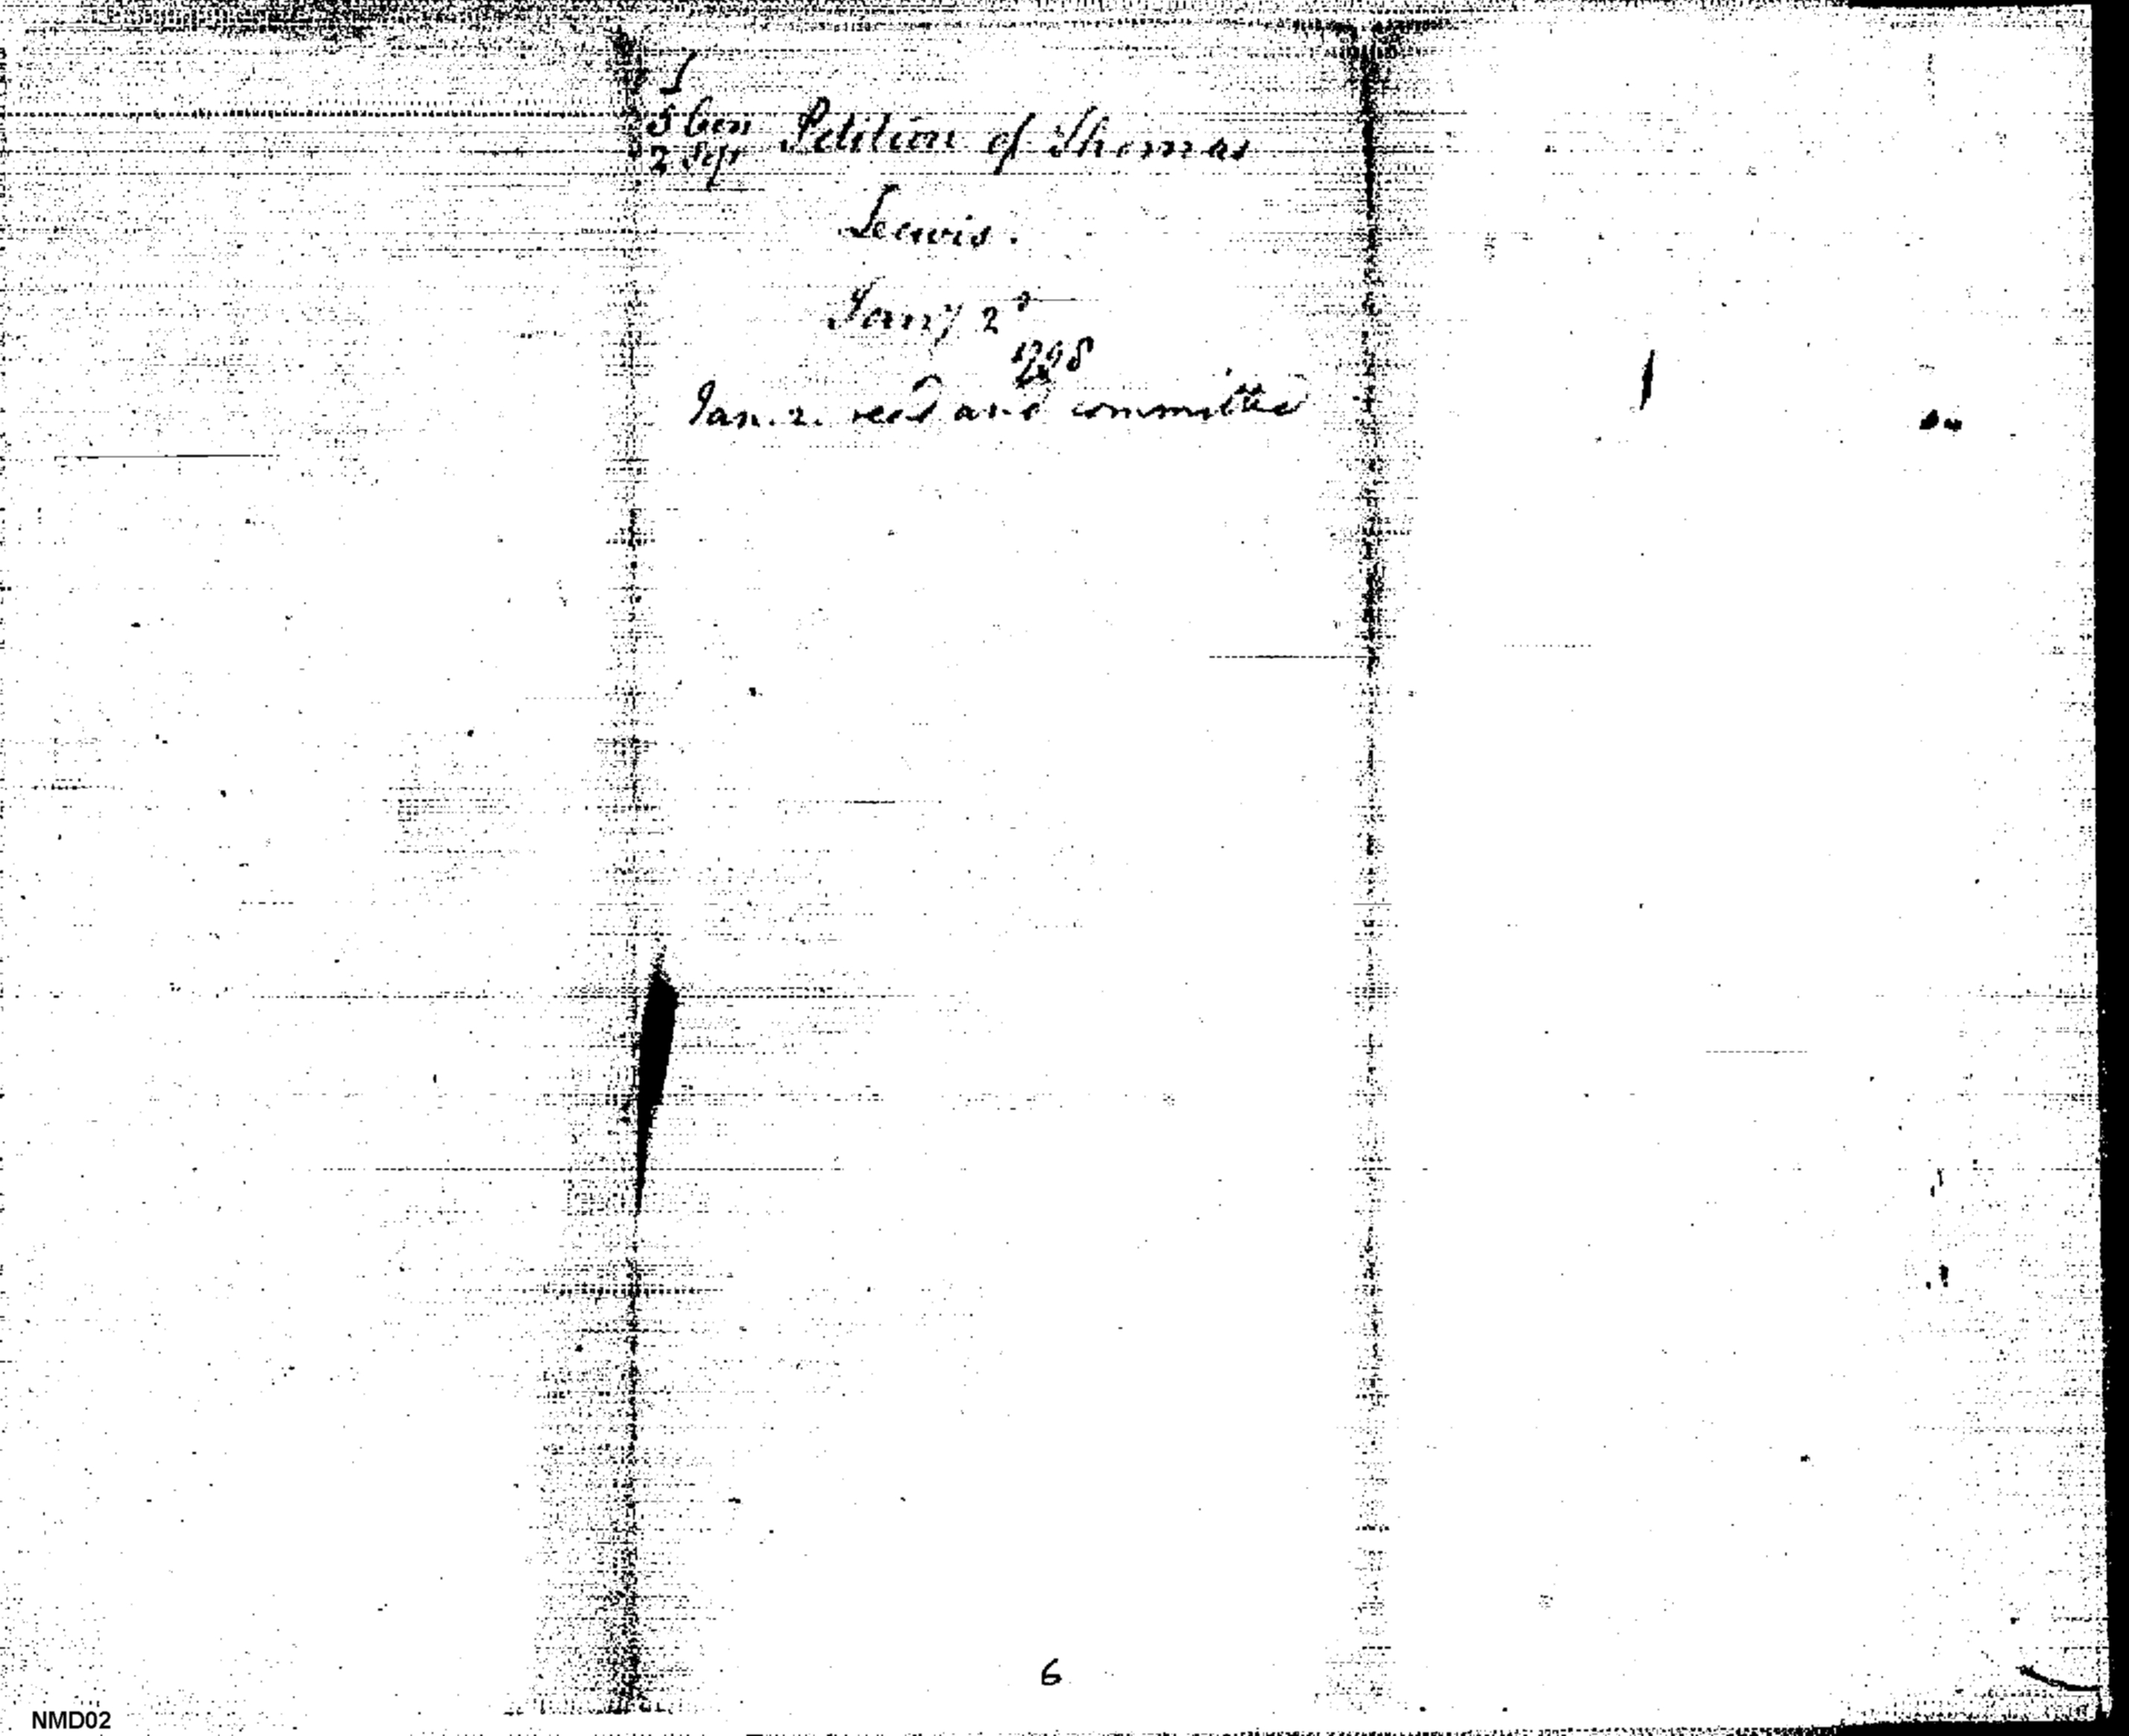 5 Con
2 Sess
Petition of Thomas
Lewis.
Jany 2d
1798
Jan. 2. recd and committed
6
NMD02